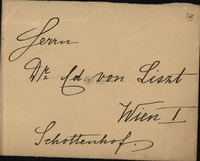 18
Herrn
Dr. Ed von Liszt
Wien I
Schottenhof.